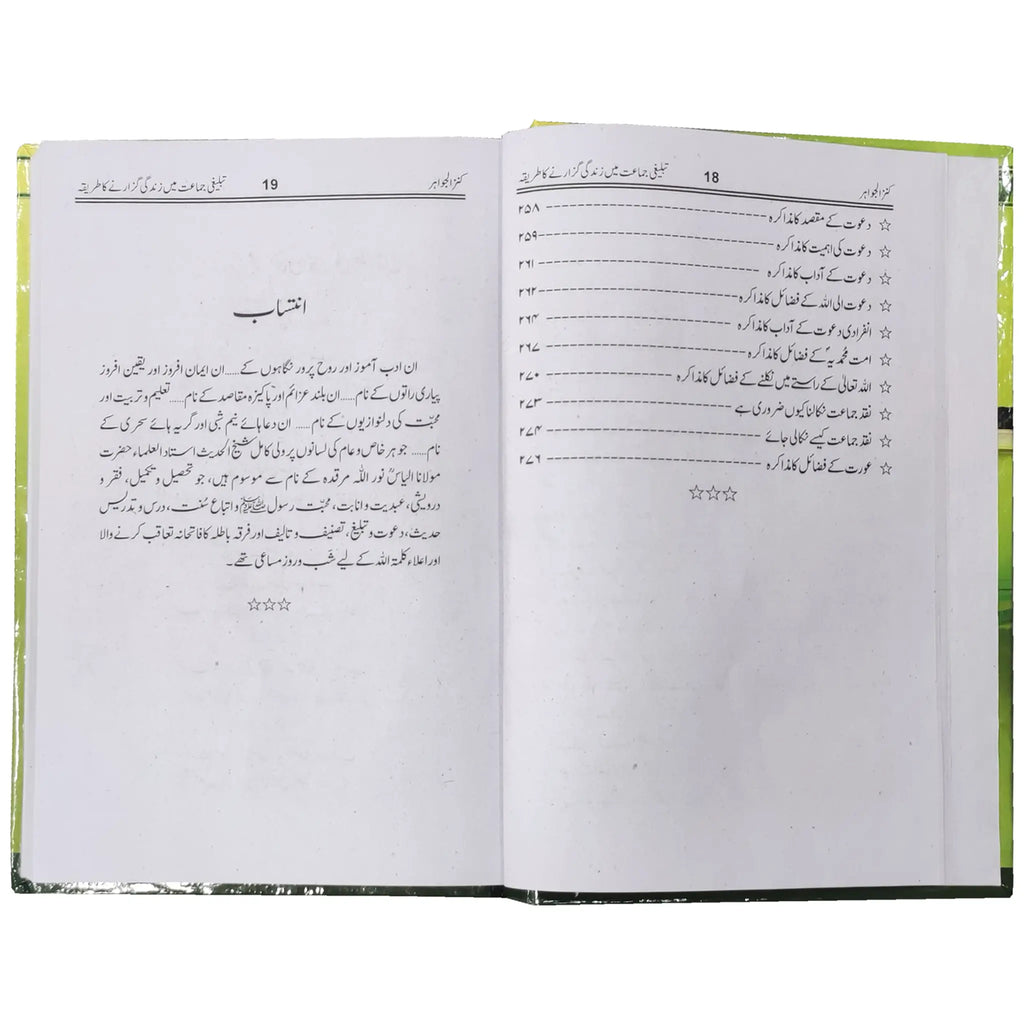 کنز الجواہر 18 تبلیغی جماعت میں زندگی گزارنے کا طریقہ
☆ دعوت کے مقصد کا مذاکرہ ---------- ۲۵۸
☆ دعوت کی اہمیت کا مذاکرہ ---------- ۲۵۹
☆ دعوت کے آداب کا مذاکرہ ---------- ۲۶۱
☆ دعوت الی اللہ کے فضائل کا مذاکرہ ---------- ۲۶۲
☆ انفرادی دعوت کے آداب کا مذاکرہ ---------- ۲۶۴
☆ امت محمدیہؐ کے فضائل کا مذاکرہ ---------- ۲۶۷
☆ اللہ تعالیٰ کے راستے میں نکلنے کے فضائل کا مذاکرہ ---------- ۲۷۰
☆ نقد جماعت نکالنا کیوں ضروری ہے ---------- ۲۷۳
☆ نقد جماعت کیسے نکالی جائے ---------- ۲۷۴
☆ عورت کے فضائل کا مذاکرہ ---------- ۲۷۶
☆☆☆
کنز الجواہر 19 تبلیغی جماعت میں زندگی گزارنے کا طریقہ
انتساب
ان ادب آموز اور روح پرور نگاہوں کے ...... ان ایمان افروز اور یقین افروز
پیاری راتوں کے نام ...... ان بلند عزائم اور پاکیزہ مقاصد کے نام ...... تعلیم و تربیت اور
محبّت کی دلنوازیوں کے نام ...... ان دعا ہائے نیم شبی اور گریہ ہائے سحری کے
نام ...... جو ہر خاص و عام کی لسانوں پر ولی کامل شیخ الحدیث استاد العلماء حضرت
مولانا الیاسؒ نور اللہ مرقدہ کے نام سے موسوم ہیں، جو تحصیل و تکمیل، فقر و
درویشی، عبدیت و انابت، محبّت رسول ﷺ و اتباع سُنت، درس و تدریس
حدیث، دعوت و تبلیغ، تصنیف و تالیف اور فرقہ باطلہ کا فاتحانہ تعاقب کرنے والا
اور اعلاء کلمۃ اللہ کے لیے شب و روز مساعی تھے۔
☆☆☆